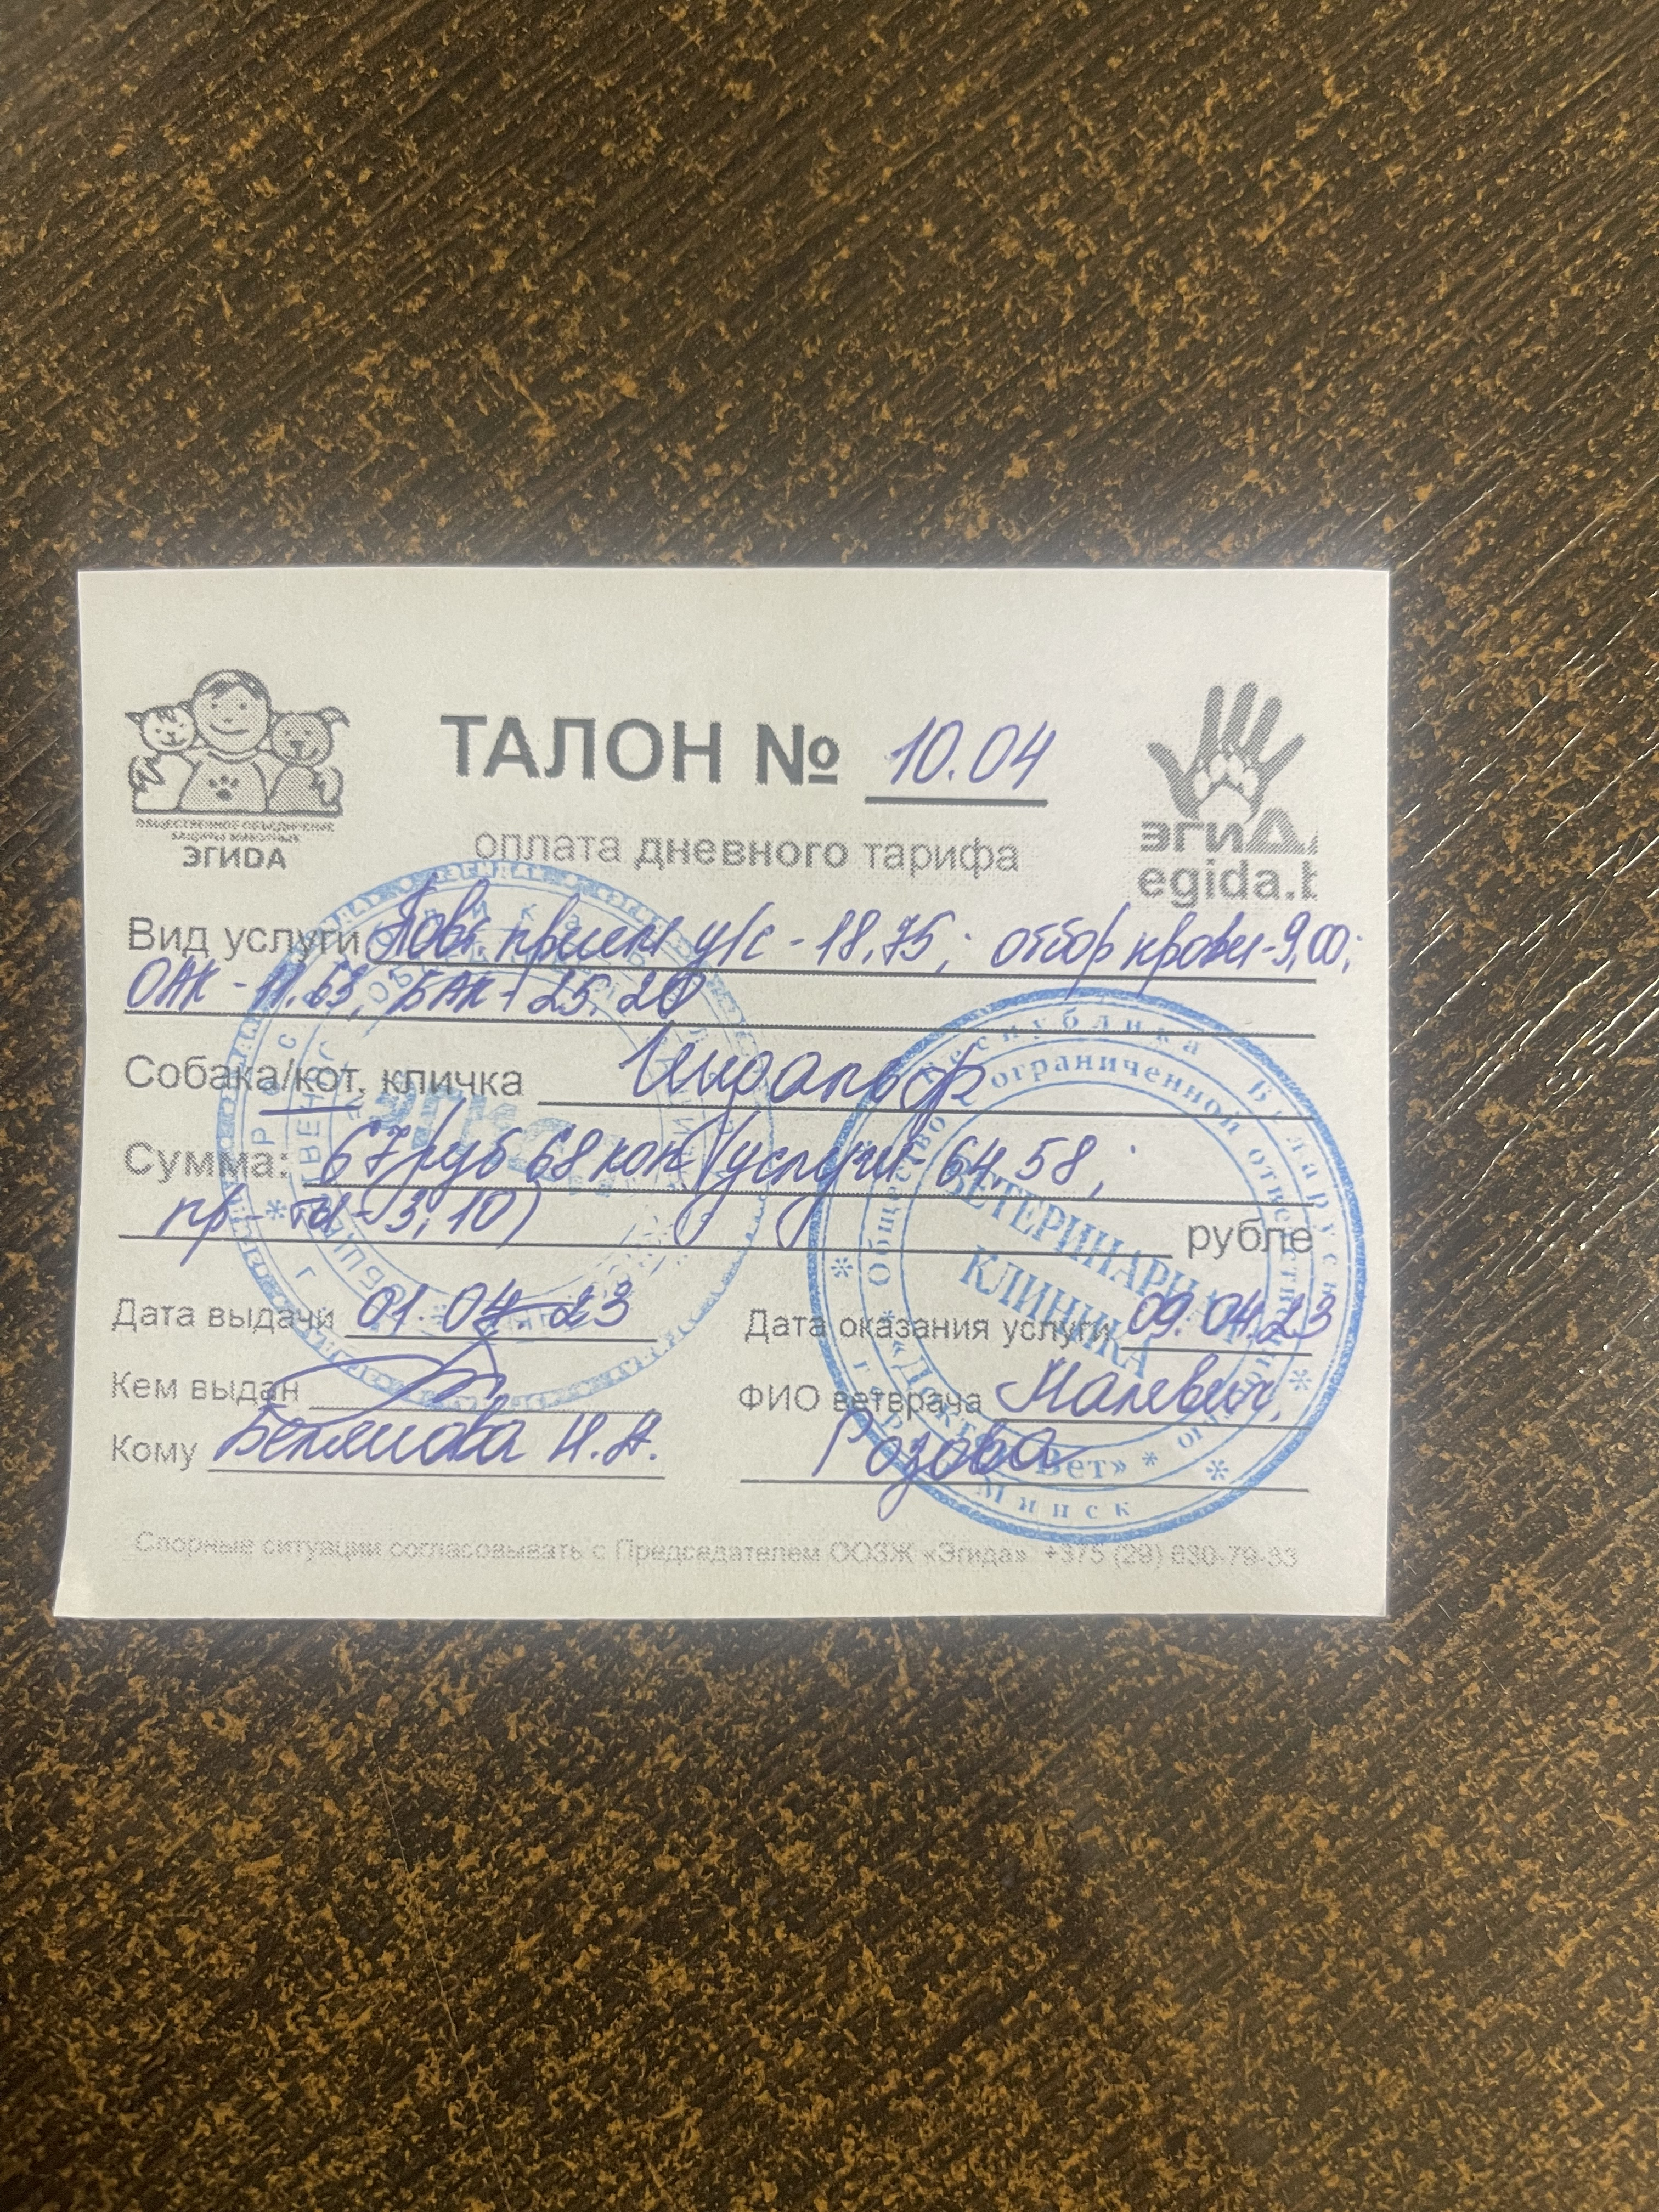 ТАЛОН № 10.04
ОБЩЕСТВЕННОЕ ОБЪЕДИНЕНИЕ
ЗАЩИТЫ ЖИВОТНЫХ
ЭГИДА
оплата дневного тарифа
ЭГИДА
egida.b
Вид услуги Повт. прием у/с - 18,75; отбор крови - 9,00;
ОАК - 11.63, БАК - 25.20
Собака/кот, кличка
Сумма: 67 руб 68 коп (услуги - 64.58;
пр-ты - 3,10) рубле
Дата выдачи 01.04.23
Дата оказания услуги 09.04.23
Кем выдан
ФИО ветврача Малевич,
Кому Н.А.
Розова
Спорные ситуации согласовывать с Председателем ООЗЖ «Эгида» +375 (29) 630-79-33
Республика Беларусь
Общество с ограниченной ответственностью
ВЕТЕРИНАРНАЯ
КЛИНИКА
«ДокторВет»
г. Минск